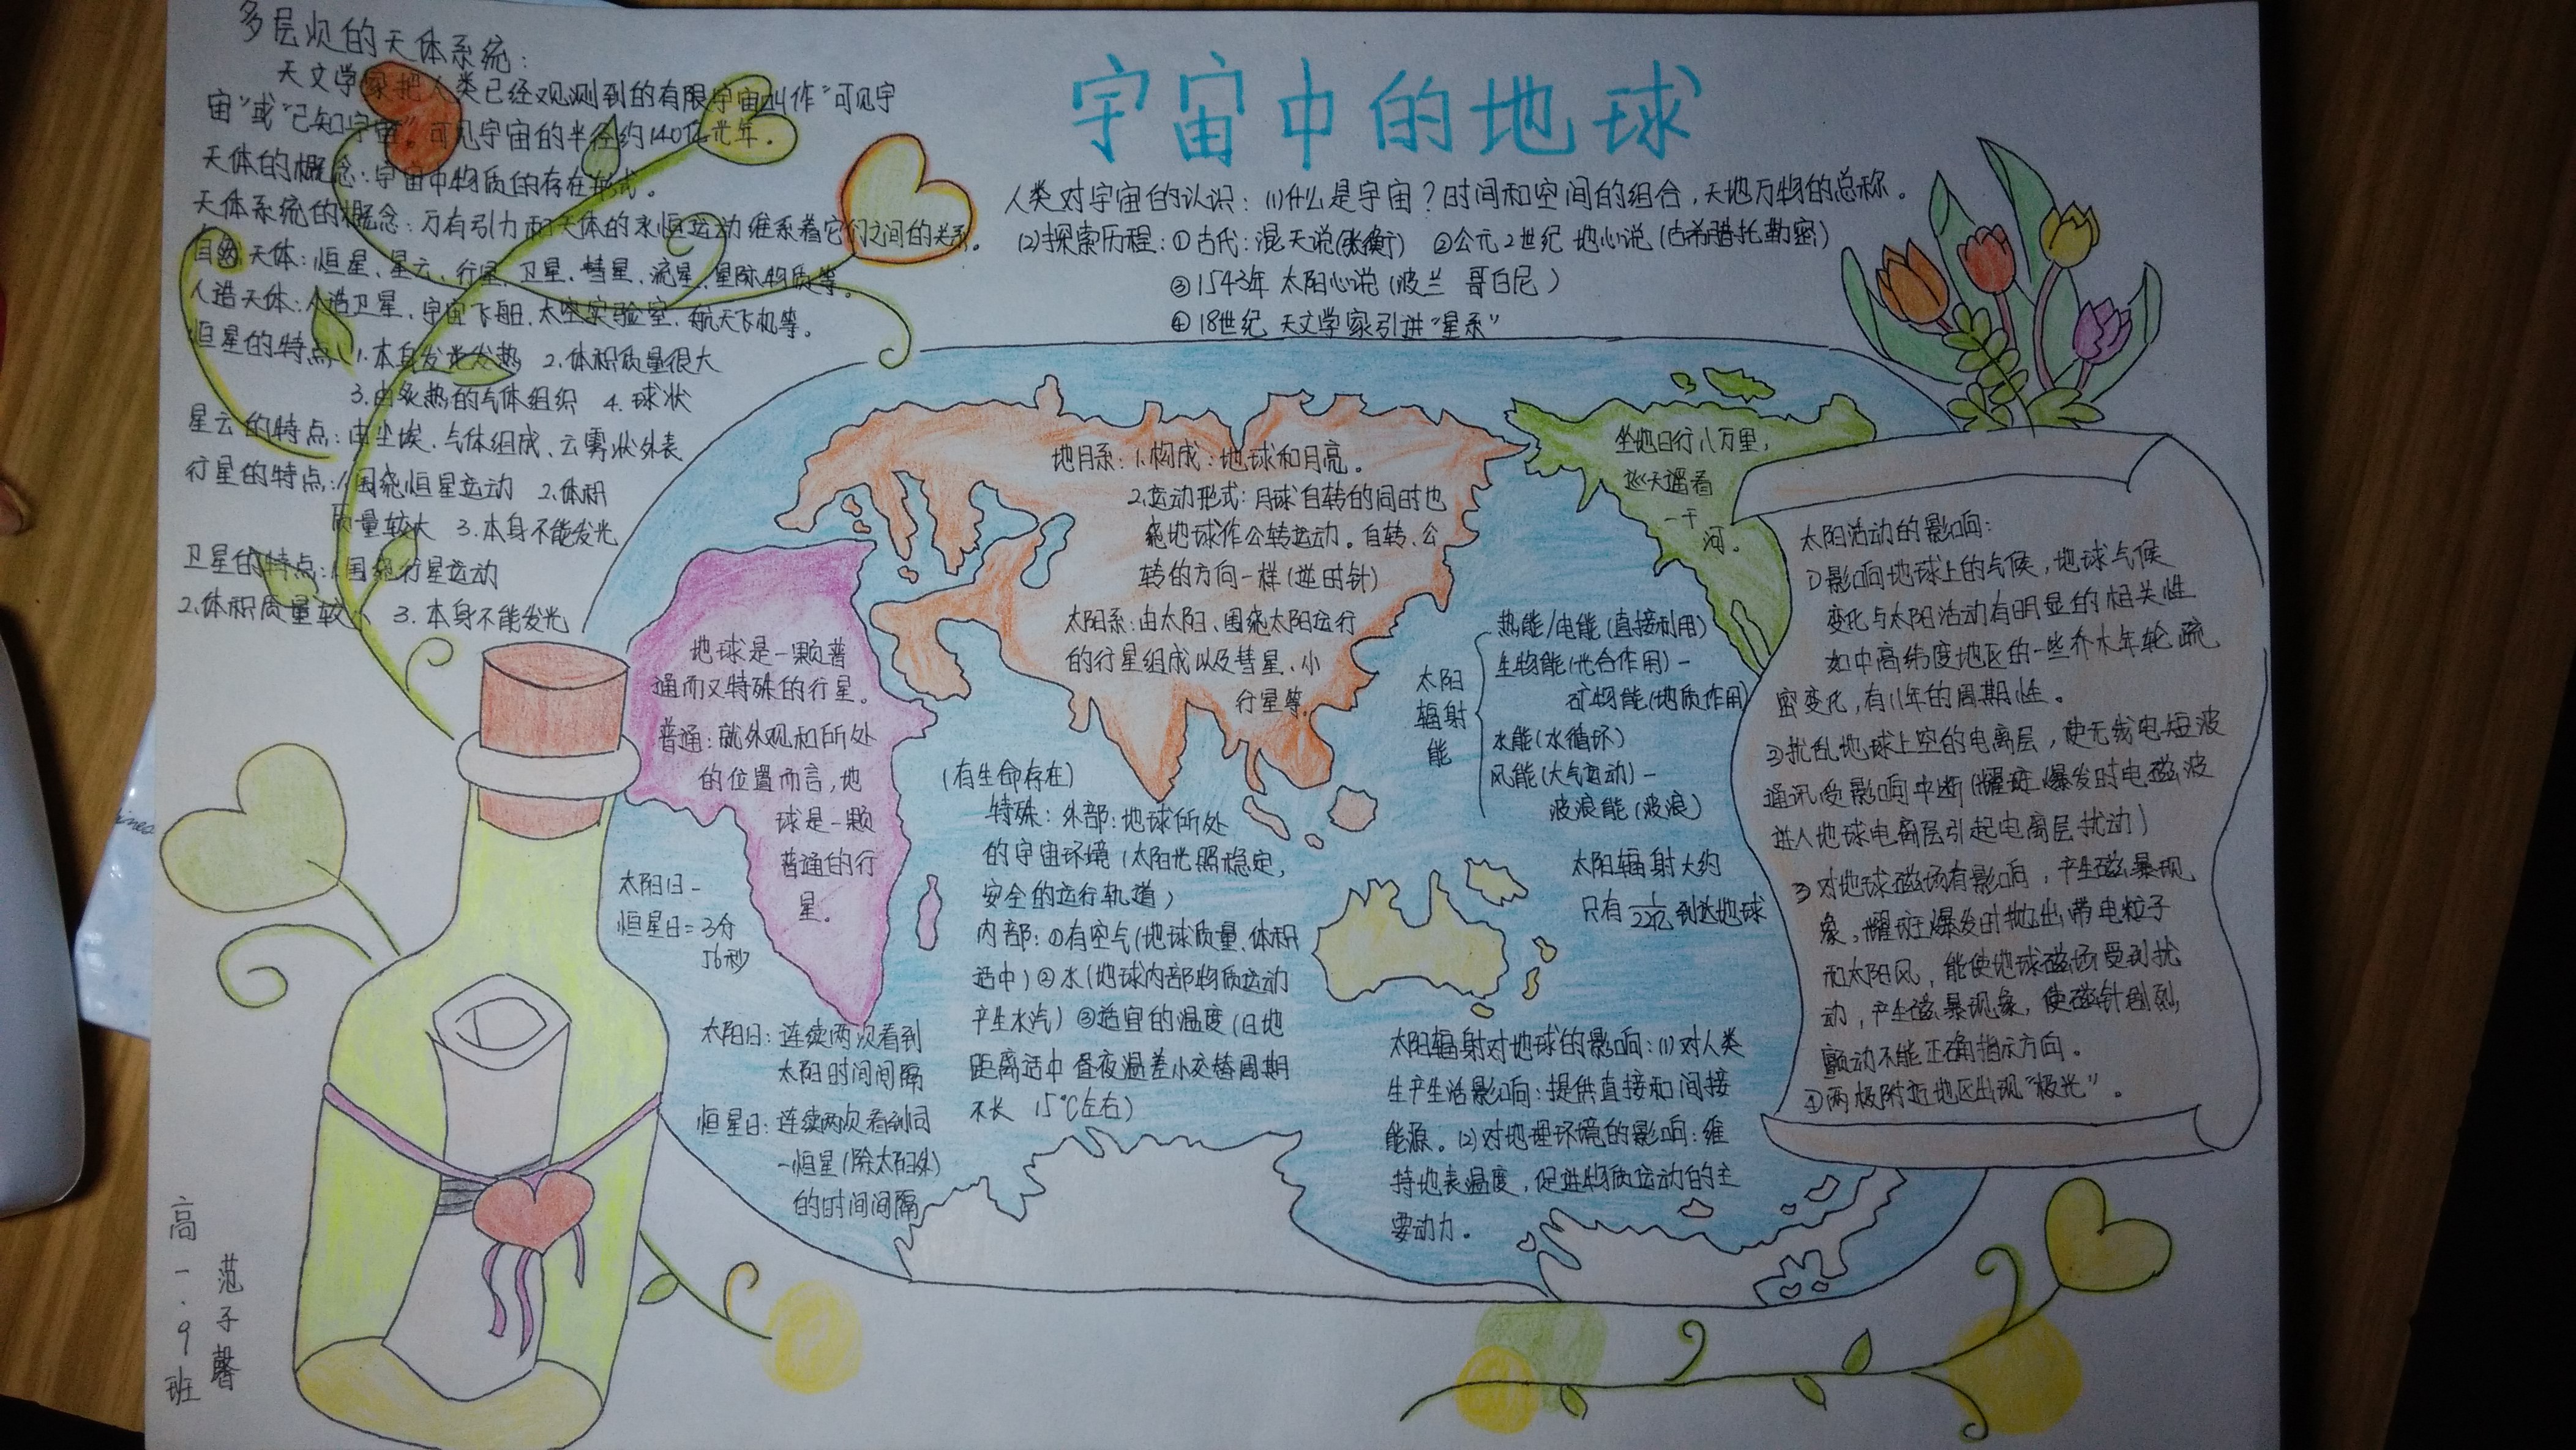 宇宙中的地球
多层次的天体系统：
天文学家把人类已经观测到的有限宇宙叫作“可见宇
宙”或“已知宇宙”。可见宇宙的半径约140亿光年。
天体的概念：宇宙中物质的存在形式。
天体系统的概念：万有引力和天体的永恒运动维系着它们之间的关系。
自然天体：恒星、星云、行星、卫星、彗星、流星、星际物质等。
人造天体：人造卫星、宇宙飞船、太空实验室、航天飞机等。
恒星的特点：1.本身发光发热 2.体积质量很大
3.由炙热的气体组织 4.球状
星云的特点：由尘埃、气体组成、云雾状外表
行星的特点：1.围绕恒星运动 2.体积
质量较大 3.本身不能发光
卫星的特点：1.围绕行星运动
2.体积质量较小 3.本身不能发光
人类对宇宙的认识：(1)什么是宇宙？时间和空间的组合，天地万物的总称。
(2)探索历程：①古代：混天说(张衡) ②公元2世纪 地心说(古希腊托勒密)
③1543年 太阳心说(波兰 哥白尼)
④18世纪 天文学家引进“星系”
地月系：1.构成：地球和月亮。
2.运动形式：月球自转的同时也
绕地球作公转运动。自转、公
转的方向一样(逆时针)
太阳系：由太阳、围绕太阳运行
的行星组成以及彗星、小
行星等。
坐地日行八万里，
巡天遥看
一千
河。
地球是一颗普
通而又特殊的行星。
普通：就外观和所处
的位置而言，地
球是一颗
普通的行
星。
(有生命存在)
特殊：外部：地球所处
的宇宙环境(太阳光照稳定，
安全的运行轨道)
内部：①有空气(地球质量、体积
适中)②水(地球内部物质运动
产生水汽)③适宜的温度(日地
距离适中 昼夜温差小交替周期
不长 15℃左右)
太阳日-
恒星日=3分
56秒
太阳日：连续两次看到
太阳时间间隔
恒星日：连续两次看到同
一恒星(除太阳外)
的时间间隔
太阳
辐射
能
热能/电能(直接利用)
生物能(光合作用)-
矿物能(地质作用)
水能(水循环)
风能(大气运动)-
波浪能(波浪)
太阳辐射大约
只有1/22亿到达地球
太阳辐射对地球的影响：(1)对人类
生产生活影响：提供直接和间接
能源。(2)对地理环境的影响：维
持地表温度，促进物质运动的主
要动力。
太阳活动的影响：
①影响地球上的气候，地球气候
变化与太阳活动有明显的相关性
如中高纬度地区的一些乔木年轮疏
密变化，有11年的周期性。
②扰乱地球上空的电离层，使无线电短波
通讯受影响中断(耀斑爆发时电磁波
进入地球电离层引起电离层扰动)
③对地球磁场有影响，产生磁暴现
象，耀斑爆发时抛出带电粒子
而太阳风，能使地球磁场受到扰
动，产生磁暴现象，使磁针剧烈
颤动不能正确指示方向。
④两极附近地区出现“极光”。
高一.9班
范子馨